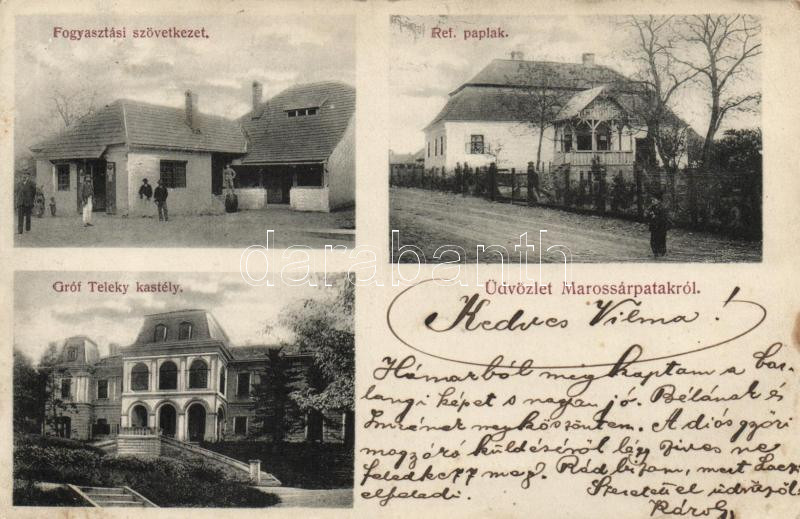 Fogyasztási szövetkezet.
Ref. paplak.
Gróf Teleky kastély.
Üdvözlet Marossárpatakról.
darabanth.com
Kedves Vilma!
Hámorból megkaptam a bar-
langi képet s nagyon jó. Bélának és
Imrének megköszöntem. A diósgyőri
magzáró küldéséről légy szives ne
feledkezz meg. Rád bízom, mert
elfeledi. Szeretettel üdvözöl
Károly